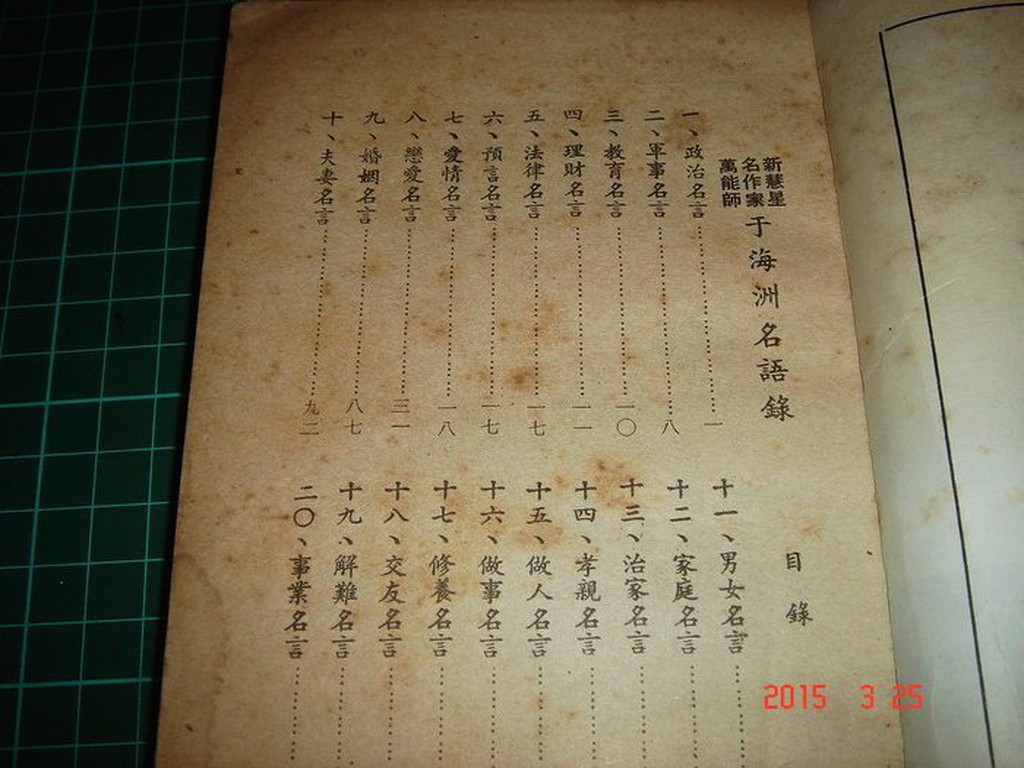 新慧星
名作家
萬能師
于海洲名語錄
目錄
一、政治名言……一
二、軍事名言……八
三、教育名言……一〇
四、理財名言……一一
五、法律名言……一七
六、預言名言……一七
七、愛情名言……一八
八、戀愛名言……三一
九、婚姻名言……八七
十、夫妻名言……九二
十一、男女名言……
十二、家庭名言……
十三、治家名言……
十四、孝親名言……
十五、做人名言……
十六、做事名言……
十七、修養名言……
十八、交友名言……
十九、解難名言……
二〇、事業名言……
2015 3 25